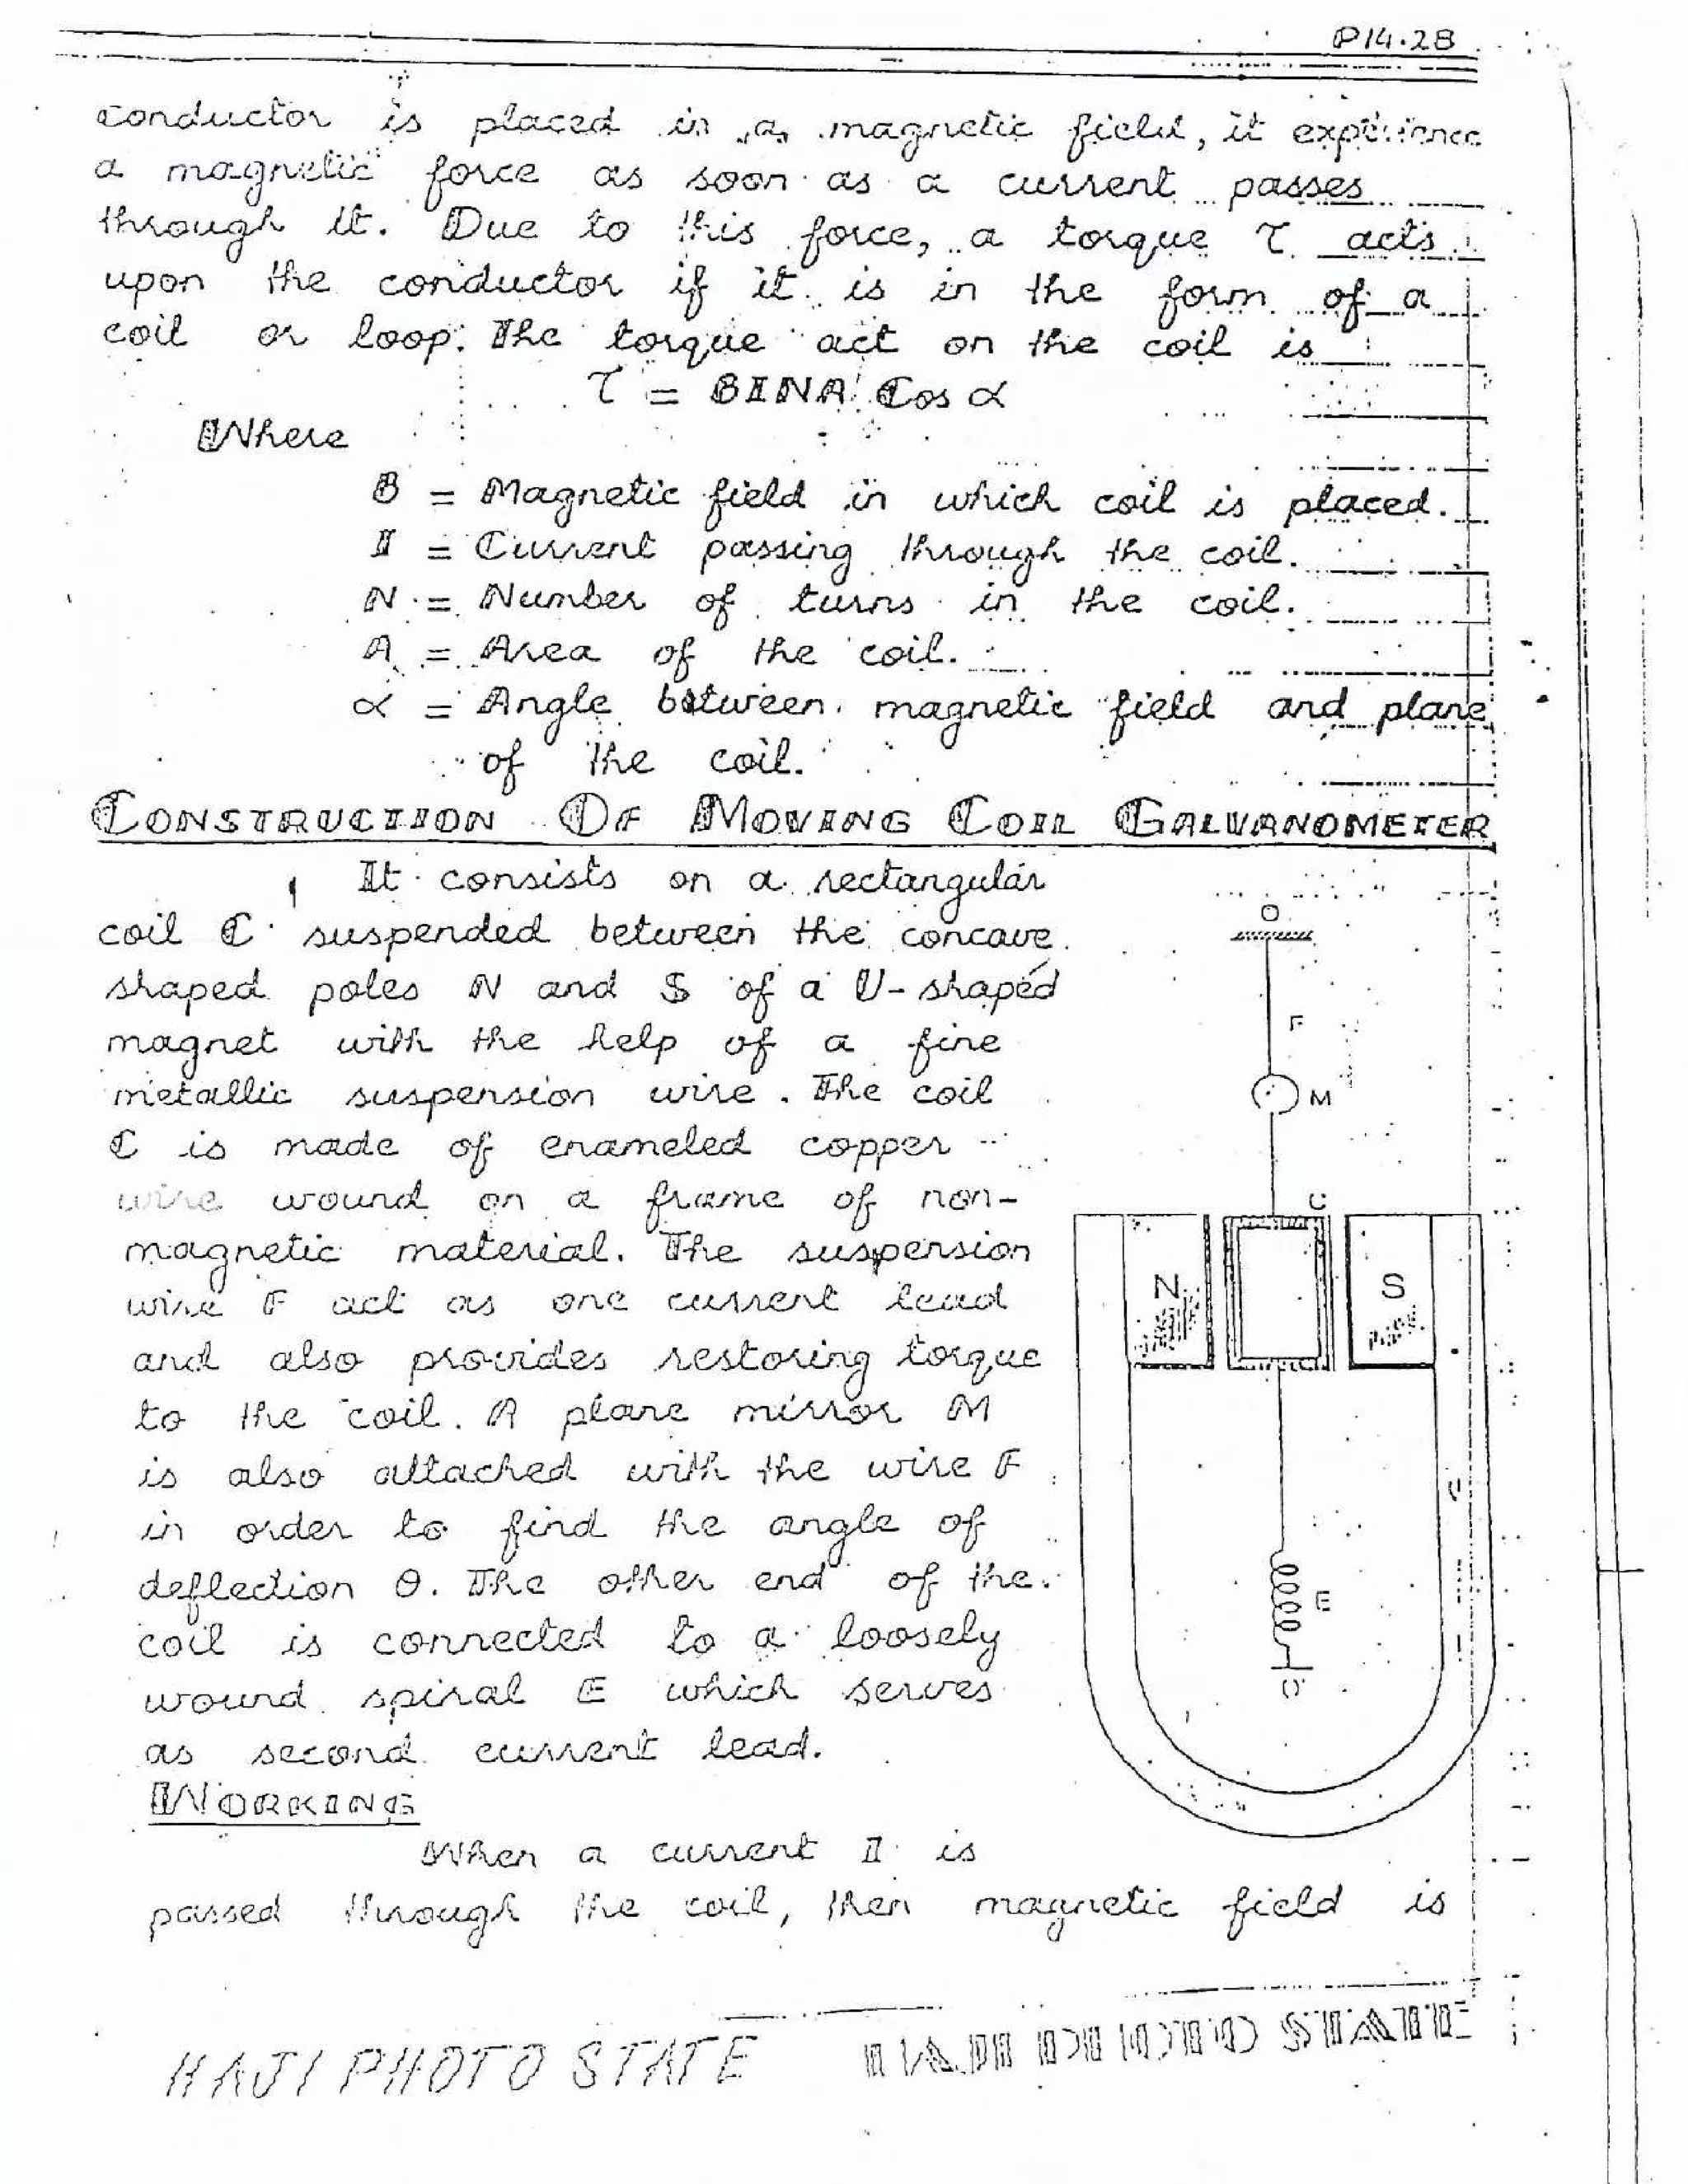 P14.28
conductor is placed in a magnetic field, it experience
a magnetic force as soon as a current passes
through it. Due to this force, a torque τ acts
upon the conductor if it is in the form of a
coil or loop. The torque act on the coil is
τ = BINA Cos α
Where
B = Magnetic field in which coil is placed.
I = Current passing through the coil.
N = Number of turns in the coil.
A = Area of the coil.
α = Angle between magnetic field and plane
of the coil.
CONSTRUCTION OF MOVING COIL GALVANOMETER
It consists on a rectangular
coil C suspended between the concave
shaped poles N and S of a U-shaped
magnet with the help of a fine
metallic suspension wire. The coil
C is made of enameled copper
wire wound on a frame of non-
magnetic material. The suspension
wire F act as one current lead
and also provides restoring torque
to the coil. A plane mirror M
is also attached with the wire F
in order to find the angle of
deflection θ. The other end of the
coil is connected to a loosely
wound spiral E which serves
as second current lead.
O
F
M
C
N
S
E
WORKING
When a current I is
passed through the coil, then magnetic field is
HAJI PHOTO STATE HAJI PHOTO STATE